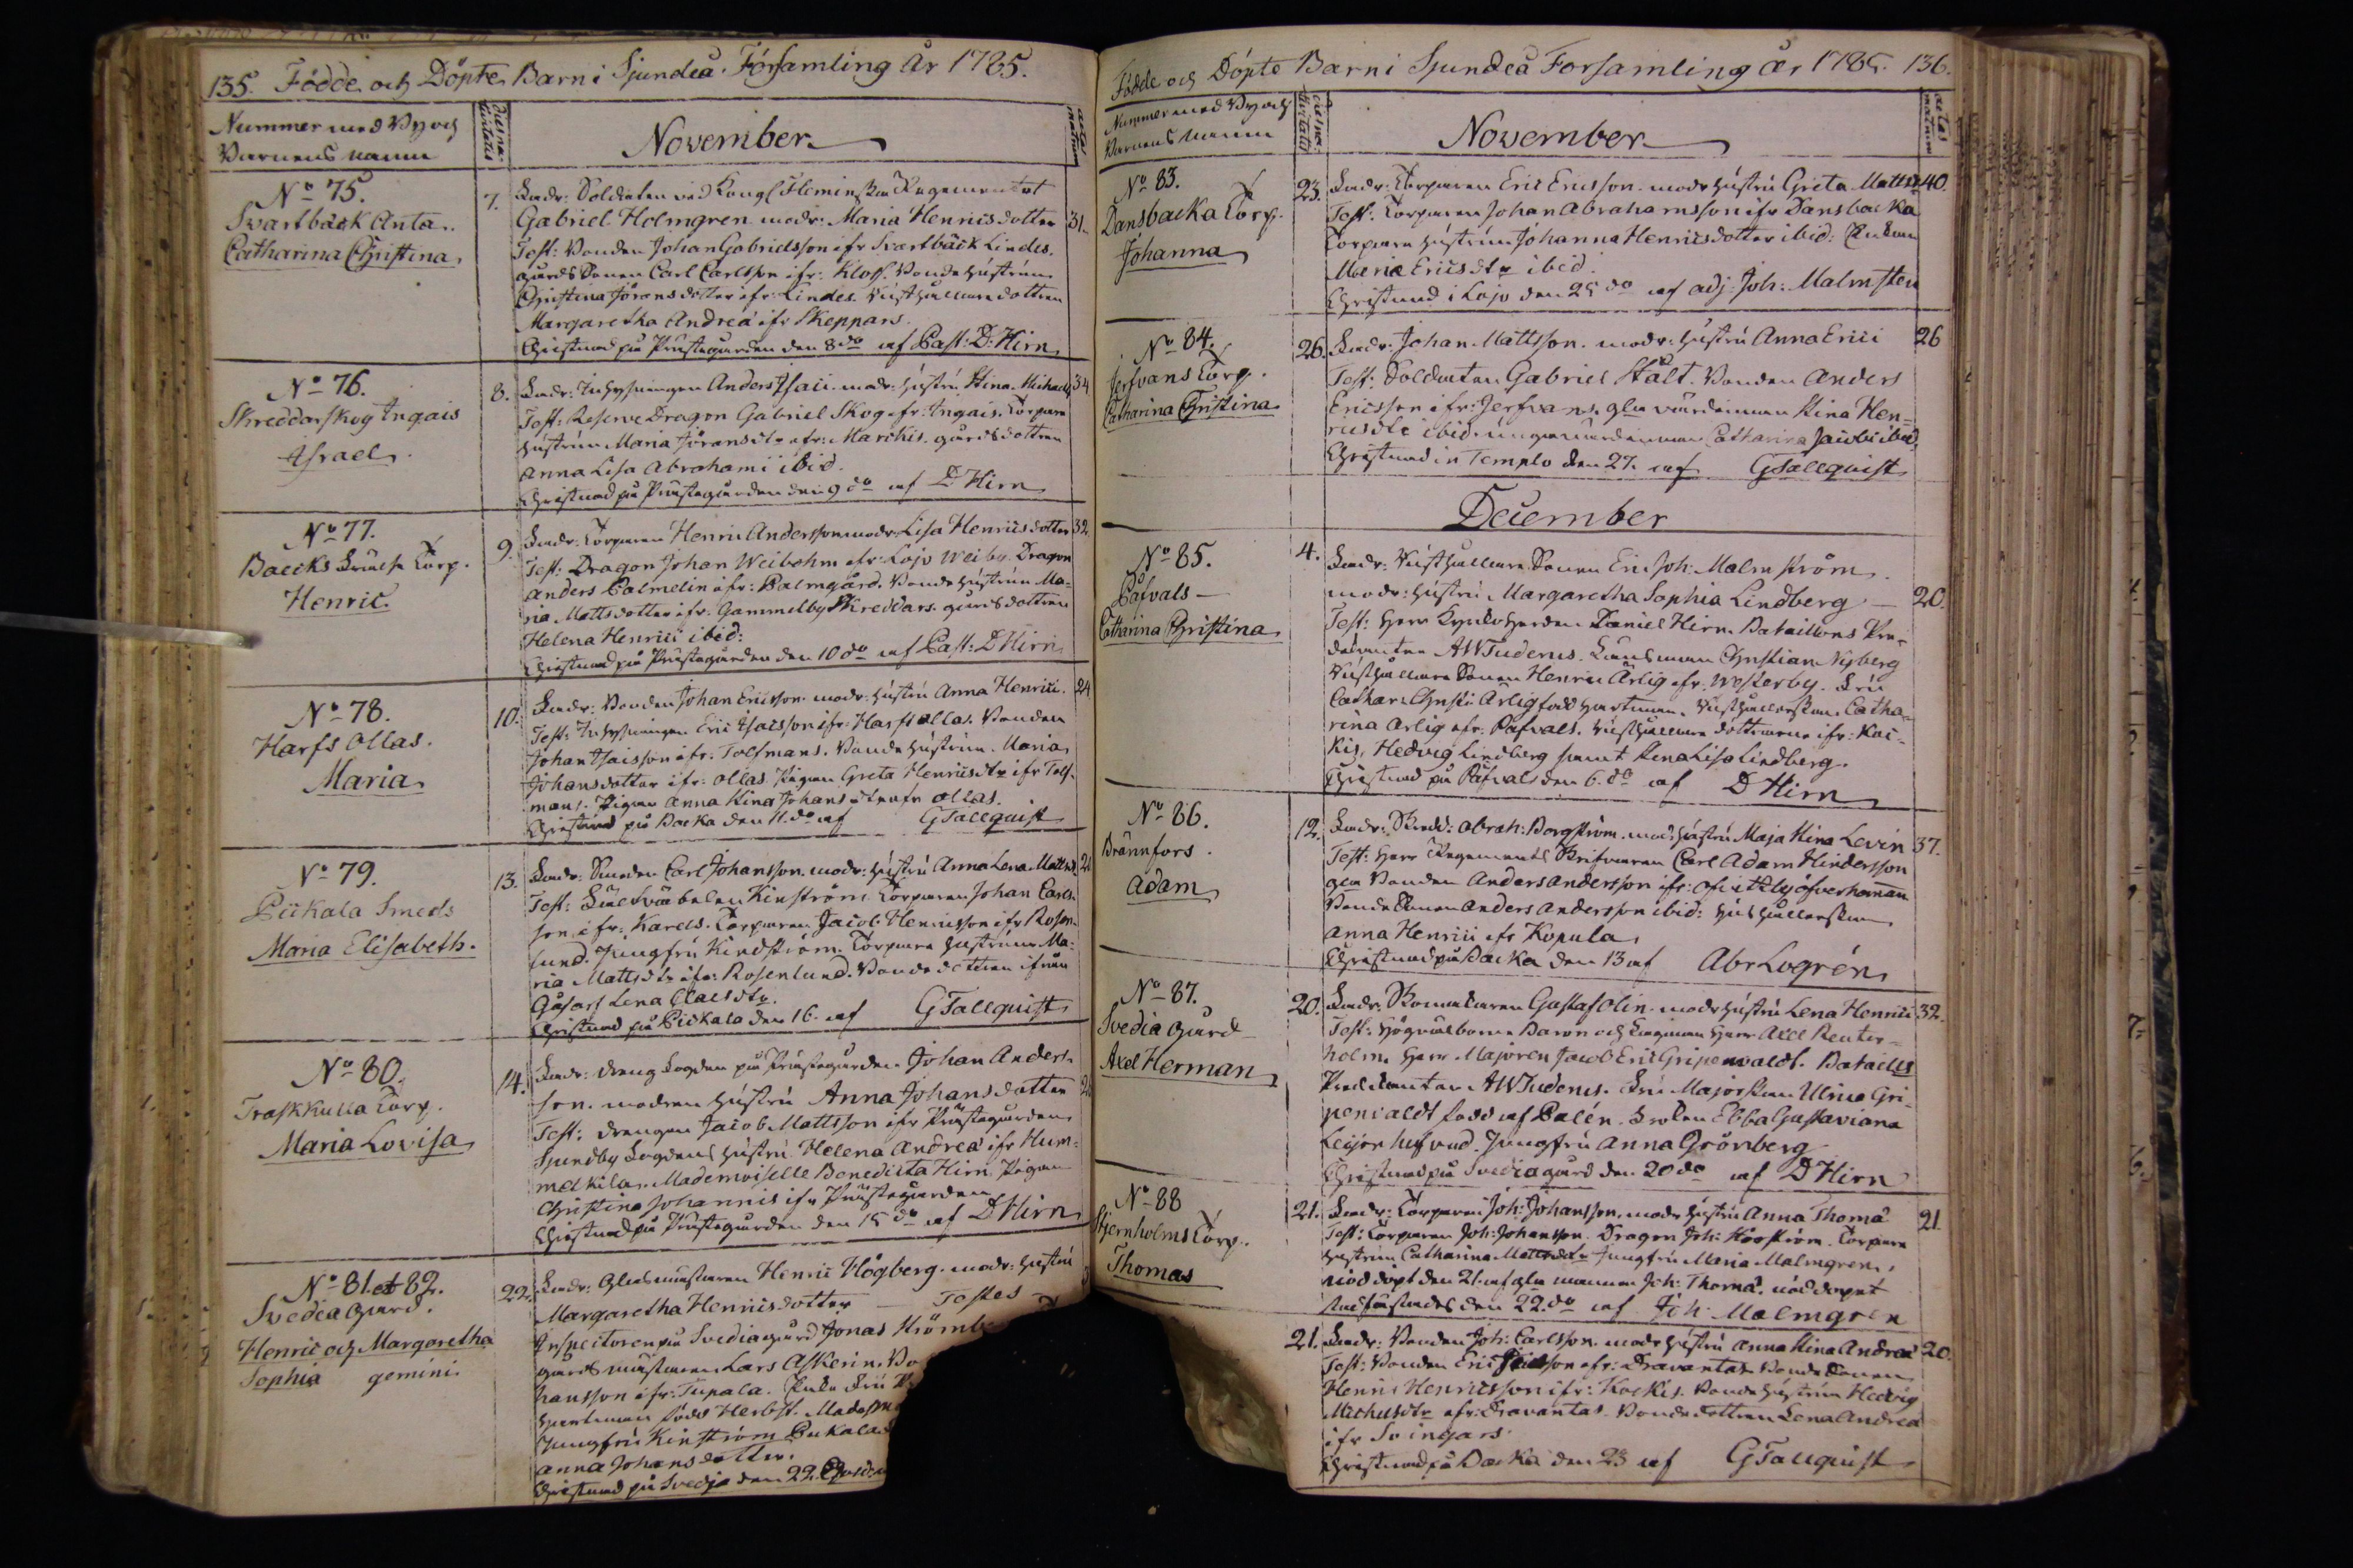 135. Födde och Döpte Barn i Sjundeå Församling År 1785.
Nummer med By och
Barnens namn
Dies na-
tivitatis
November
aetas
matrum
No 75.
Svartbäck Anta.
Catharina Christina
7.
Fadr: Soldaten vid Kongl Fleminska Regementet
Gabriel Holmgren modr: Maria Henricsdotter
31.
Test: Bonden Johan Gabrielsson ifr Svartbäck Lindes.
gårds Sonen Carl Carlsson ifr: Kloss. Bonde hustrun
Christina Jöransdotter ifr: Lindes. Rusthållare dottren
Margaretha Andreæ ifr Skeppars.
Christnad på Prästegården den 8de af Past: D: Hirn
No 76.
Skreddarskog Ingais
Israel.
8.
Fadr: Inhysningen Anders Isaci. modr: hustru Stina Michaels
34
Test: Reserve Dragon Gabriel Skog ifr: Ingais. Torpare
hustrun Maria Jöransdtr ifr: Marckis. gårdsdottren
Anna Lisa Abrahami ibid.
Christnad på Prästegården den 9 do af D Hirn
No 77.
Baecks Torp.
Henric.
9.
Fadr: Torparen Henric Andersson modr: Lisa Henricsdotter
32
Test: Dragon Johan Weibohm ifr: Lojo Weiby. Dragon
Anders Palmelin ifr: Palmgård. Bonde hustrun Ma-
ria Mattsdotter ifr: Gammelby Skreddars. gårdsdottren
Helena Henrici ibid:
Christnad på Prästegården den 10 do af Past: D Hirn
No 78.
Harfs Ollas.
Maria
10.
Fadr: Bonden Johan Ericsson. modr: hustru Anna Henrici.
24
Test: Inhysningen Eric Isacsson ifr: Harfs Ollas. Bonden
Johan Isacsson ifr: Tolfmans. Bonde hustrun Maria
Johansdotter ifr: Ollas. Pigan Greta Henricsdtr ifr Tolf-
mans. Pigan Anna Stina Johansdtr ifr Ollas.
Christnad på Backa den 11. do af G Tallquist
No 79.
Pickala Smeds
Maria Elisabeth.
13.
Fadr: Smeden Carl Johansson. modr: hustru Anna Lena Mattsd.
Test: Kinström. Torparen Johan Carls-
son ifr: Karels. Torparen Jacob Henricsson ifr Rosen-
lund. Jungfru Kindström. Torpare hustrun Ma-
ria Mattsdtr ifr: Rosenlund. Bonde dottren ifrån
Gåsars Lena Claesdtr.
Christnad på Pickala den 16. af G Tallquist
No 80.
Traskkulla Torp.
Maria Lovisa
14.
Fadr: dreng Fogden på Prästegården Johan Anders-
son. modren hustru Anna Johansdotter
Test: drengen Jacob Mattsson ifr Prästegården
Sjundby Fogdens hustru Helena Andreæ ifr Hum-
melkila. Mademoiselle Benedicta Hirn. Pigan
Christina Johannis ifr Prästegården
Christnad på Prästegården den 15 do af D Hirn
No 81. et 82.
Svedia gård.
Henric och Margaretha
Sophia gemini.
22.
Fadr: Glasmästaren Henric Högberg. modr: hustru
Margaretha Henricsdotter Testes
Inspectoren på Svediagård Jonas Strömb
gårdsmästaren Lars Askerin. Bo
hansson ifr: Tupala. Fru
Hartman född Herbst. Madem
Jungfru Kinström Pickala
Anna Johansdotter.
Christnad på Svedja den 22.
Födde och Döpte Barn i Sjundeå Forsamling År 1785. 136.
Nummer med By och
Barnens Namn
dies na-
tivitatis
November
aetas
matrum
No 83.
Dansbacka Torp.
Johanna
23.
Fadr: Torparen Eric Ericsson. modr hustru Greta Mattsd
40.
Test: Torparen Johan Abrahamsson ifr Dansbacka
Torpare hustrun Johanna Henricsdotter ibid: Enkan
Maria Ericsdtr ibid.
Christnad i Lojo den 25 do af adj: Joh: Malmsten
No 84.
Jerfvans Torp.
Catharina Christina
26.
Fadr: Johan Mattsson. modr: hustru Anna Erici
26
Test: Soldaten Gabriel Stålt. Bonden Anders
Ericsson ifr: Jerfvans. gla värdinnan Stina Hen-
ricsdtr ibid. unga värdinnan Catharina Jacobi ibid.
Christnad in Templo den 27. af G Tallquist
December
No 85.
Påfvals —
Catharina Christina
4.
Fadr: Rusthållare Sonen Eric Joh: Malmström.
modr: hustru Margaretha Sophia Lindberg —
20.
Test: Herr Kyrkoherden Daniel Hirn. Bataillons Pre-
dikanten A W Tuderus. Länsman Christian Nyberg
Rusthållare Sonen Henric Ärlig ifr: Westerby. Fru
Cathar: Christi: Ärlig född Hartman. Rusthållerskan Catha-
rina Ärlig ifr: Påfvals. Rusthållare döttrarna ifr: Kac-
kis, Hedvig Lindberg samt Stena Lisa Lindberg.
Christnad på Påfvals den 6. do af D Hirn
No 86.
Brännfors.
Adam
12.
Fadr: Skredd: Abrah: Borgström. modr hustru Maja Stina Levin
37.
Test: Herr Regements Skrifvaren Carl Adam Hindersson
gla Bonden Anders Andersson ifr:
Bonde Sonen Anders Andersson ibid: hushållerskan
Anna Henrici ifr Kopula
Christnad på Backa den 13 af Abr Logrén
No 87.
Svedia gård
Axel Herman
20.
Fadr: Skomakaren Gustaf Olin. modr hustru Lena Henrici
32.
Test: Högvälborne Baron och Herr Axel Reuter-
holm. Herr Majoren Jacob Eric Gripenwaldt. Bataills
Predikanten A W Tuderus. Fru Majorskan Ulrica Gri-
penvaldt född af Palén. Fröken Ebba Gustaviana
Leijonhufvud. Jungfru Anna Grönberg
Christnad på Svediagård den 20 do af D Hirn
No 88
Stjernholms Torp.
Thomas
21.
Fadr: Torparen Joh: Johansson. modr hustru Anna Thomæ
21.
Test: Torparen Joh: Johansson. Dragon Joh: Höström. Torpare
hustrun Catharina Mattsdtr Jungfru Maria Malmgren.
nöd döpt den 21. af gla mannen Joh: Thomæ. nöd dopet
stadfästades den 22. do af Joh: Malmgren
21.
Fadr: Bonden Joh: Carlsson. modr hustru Anna Stina Andreæ
20.
Test: Bonden Eric Ericsson ifr: Dravantas Bonde Sonen
Henric Henricsson ifr: Kackis. Bonde hustrun Hedvig
Michelsdtr ifr: Dravantas. Bonde dottren Lena Andreæ
ifr Svingars.
Christnad på Backa den 23 af G Tallquist